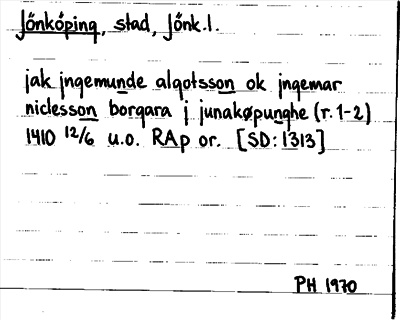 Jönköping, stad, Jönk.l.
jak jngemunde algotsson ok jngemar
niclesson borgara j junakøpunghe (r.1-2)
1410 12/6 u.o. RAp or. [SD: 1313]
PH 1970